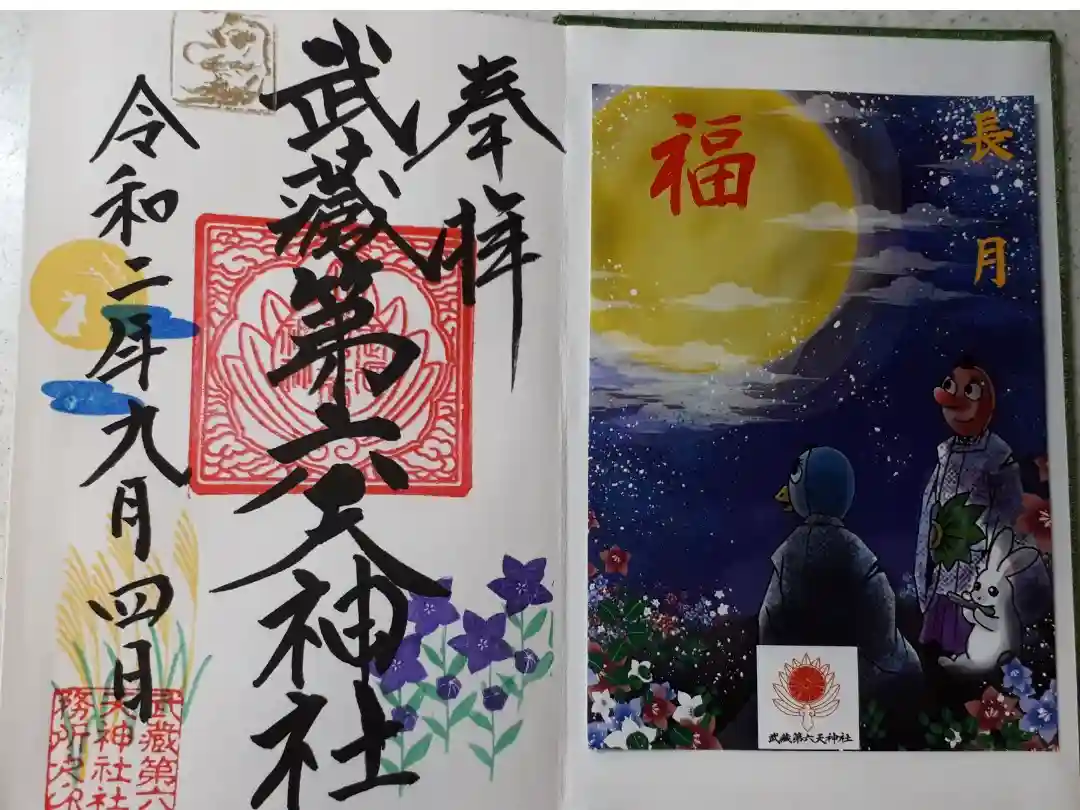 奉拝
武蔵第六天神社
令和二年九月四日
武蔵第六
天神社社
務所之印
福
長月
武蔵第六天神社